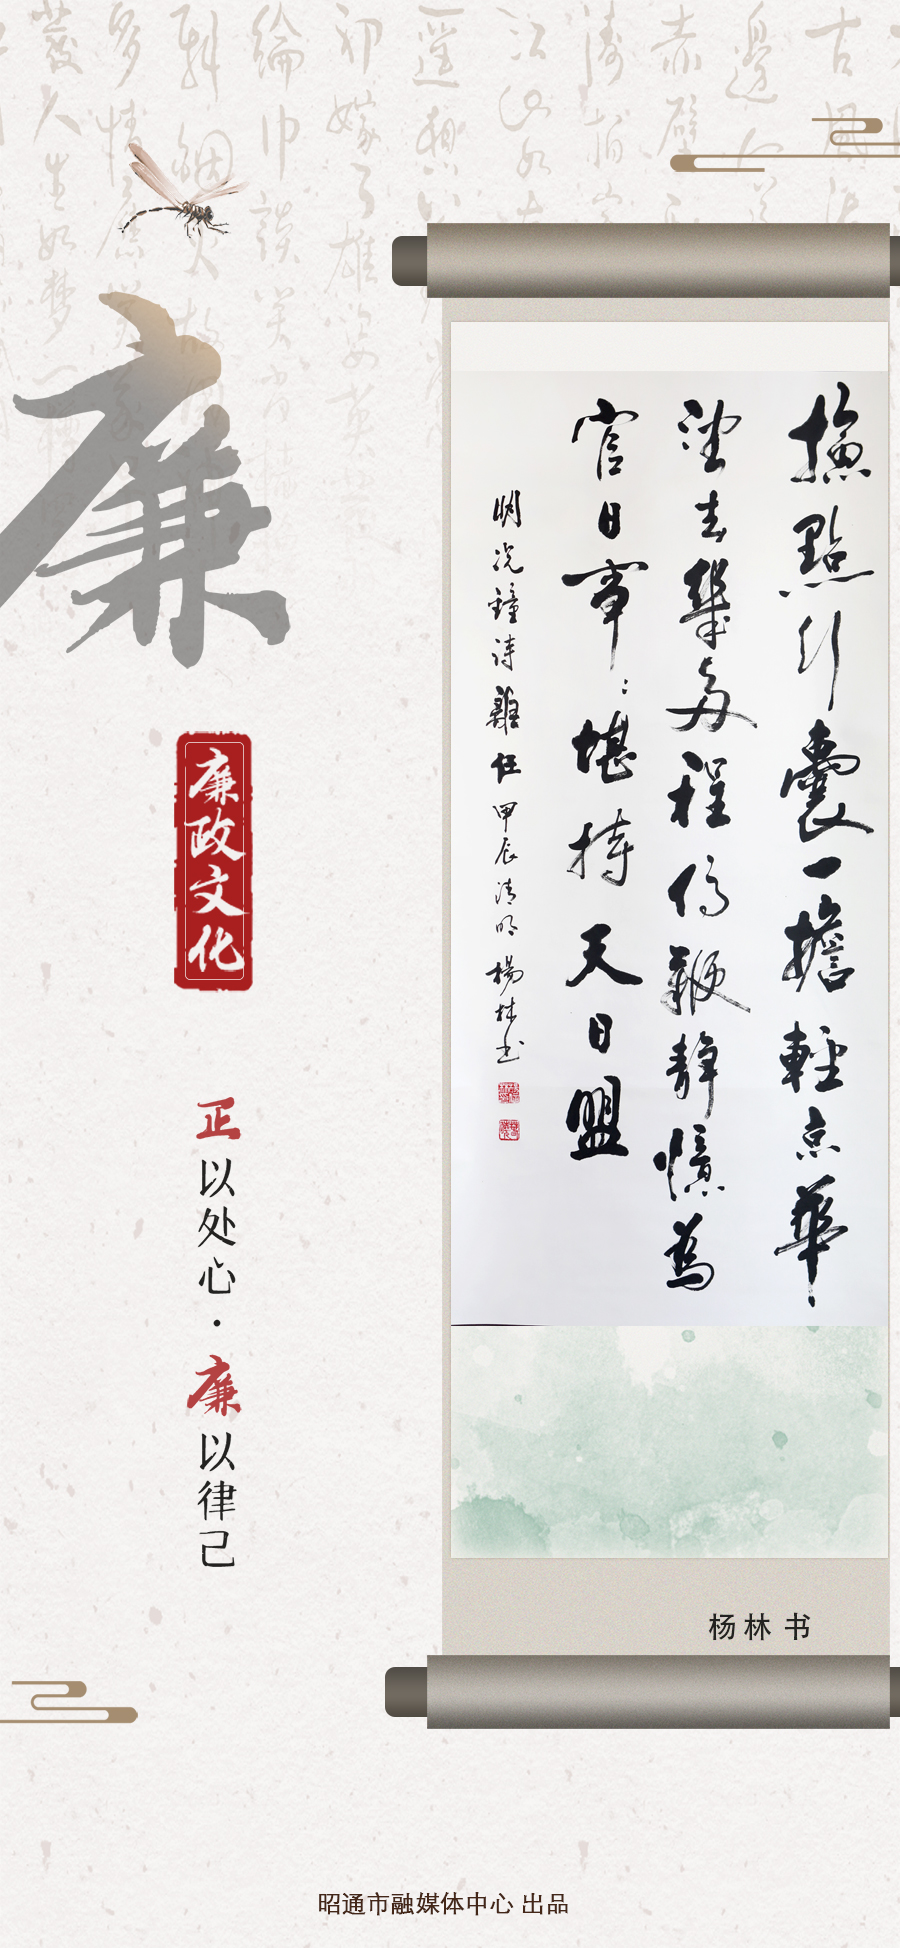 廉
廉政文化
正以处心·廉以律己
撿點行囊一擔輕京華
望去幾多程停鞭靜憶為
官日事〻堪持天日盟
明况鐘詩離任 甲辰清明 楊林书
杨林 书
昭通市融媒体中心 出品